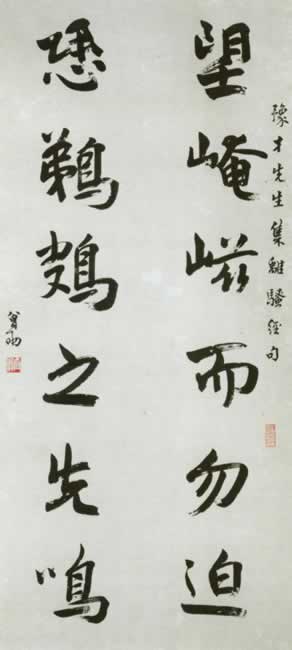 豫才先生集離騷經句
望崦嵫而勿迫
恐鵜鴂之先鳴
曾劬